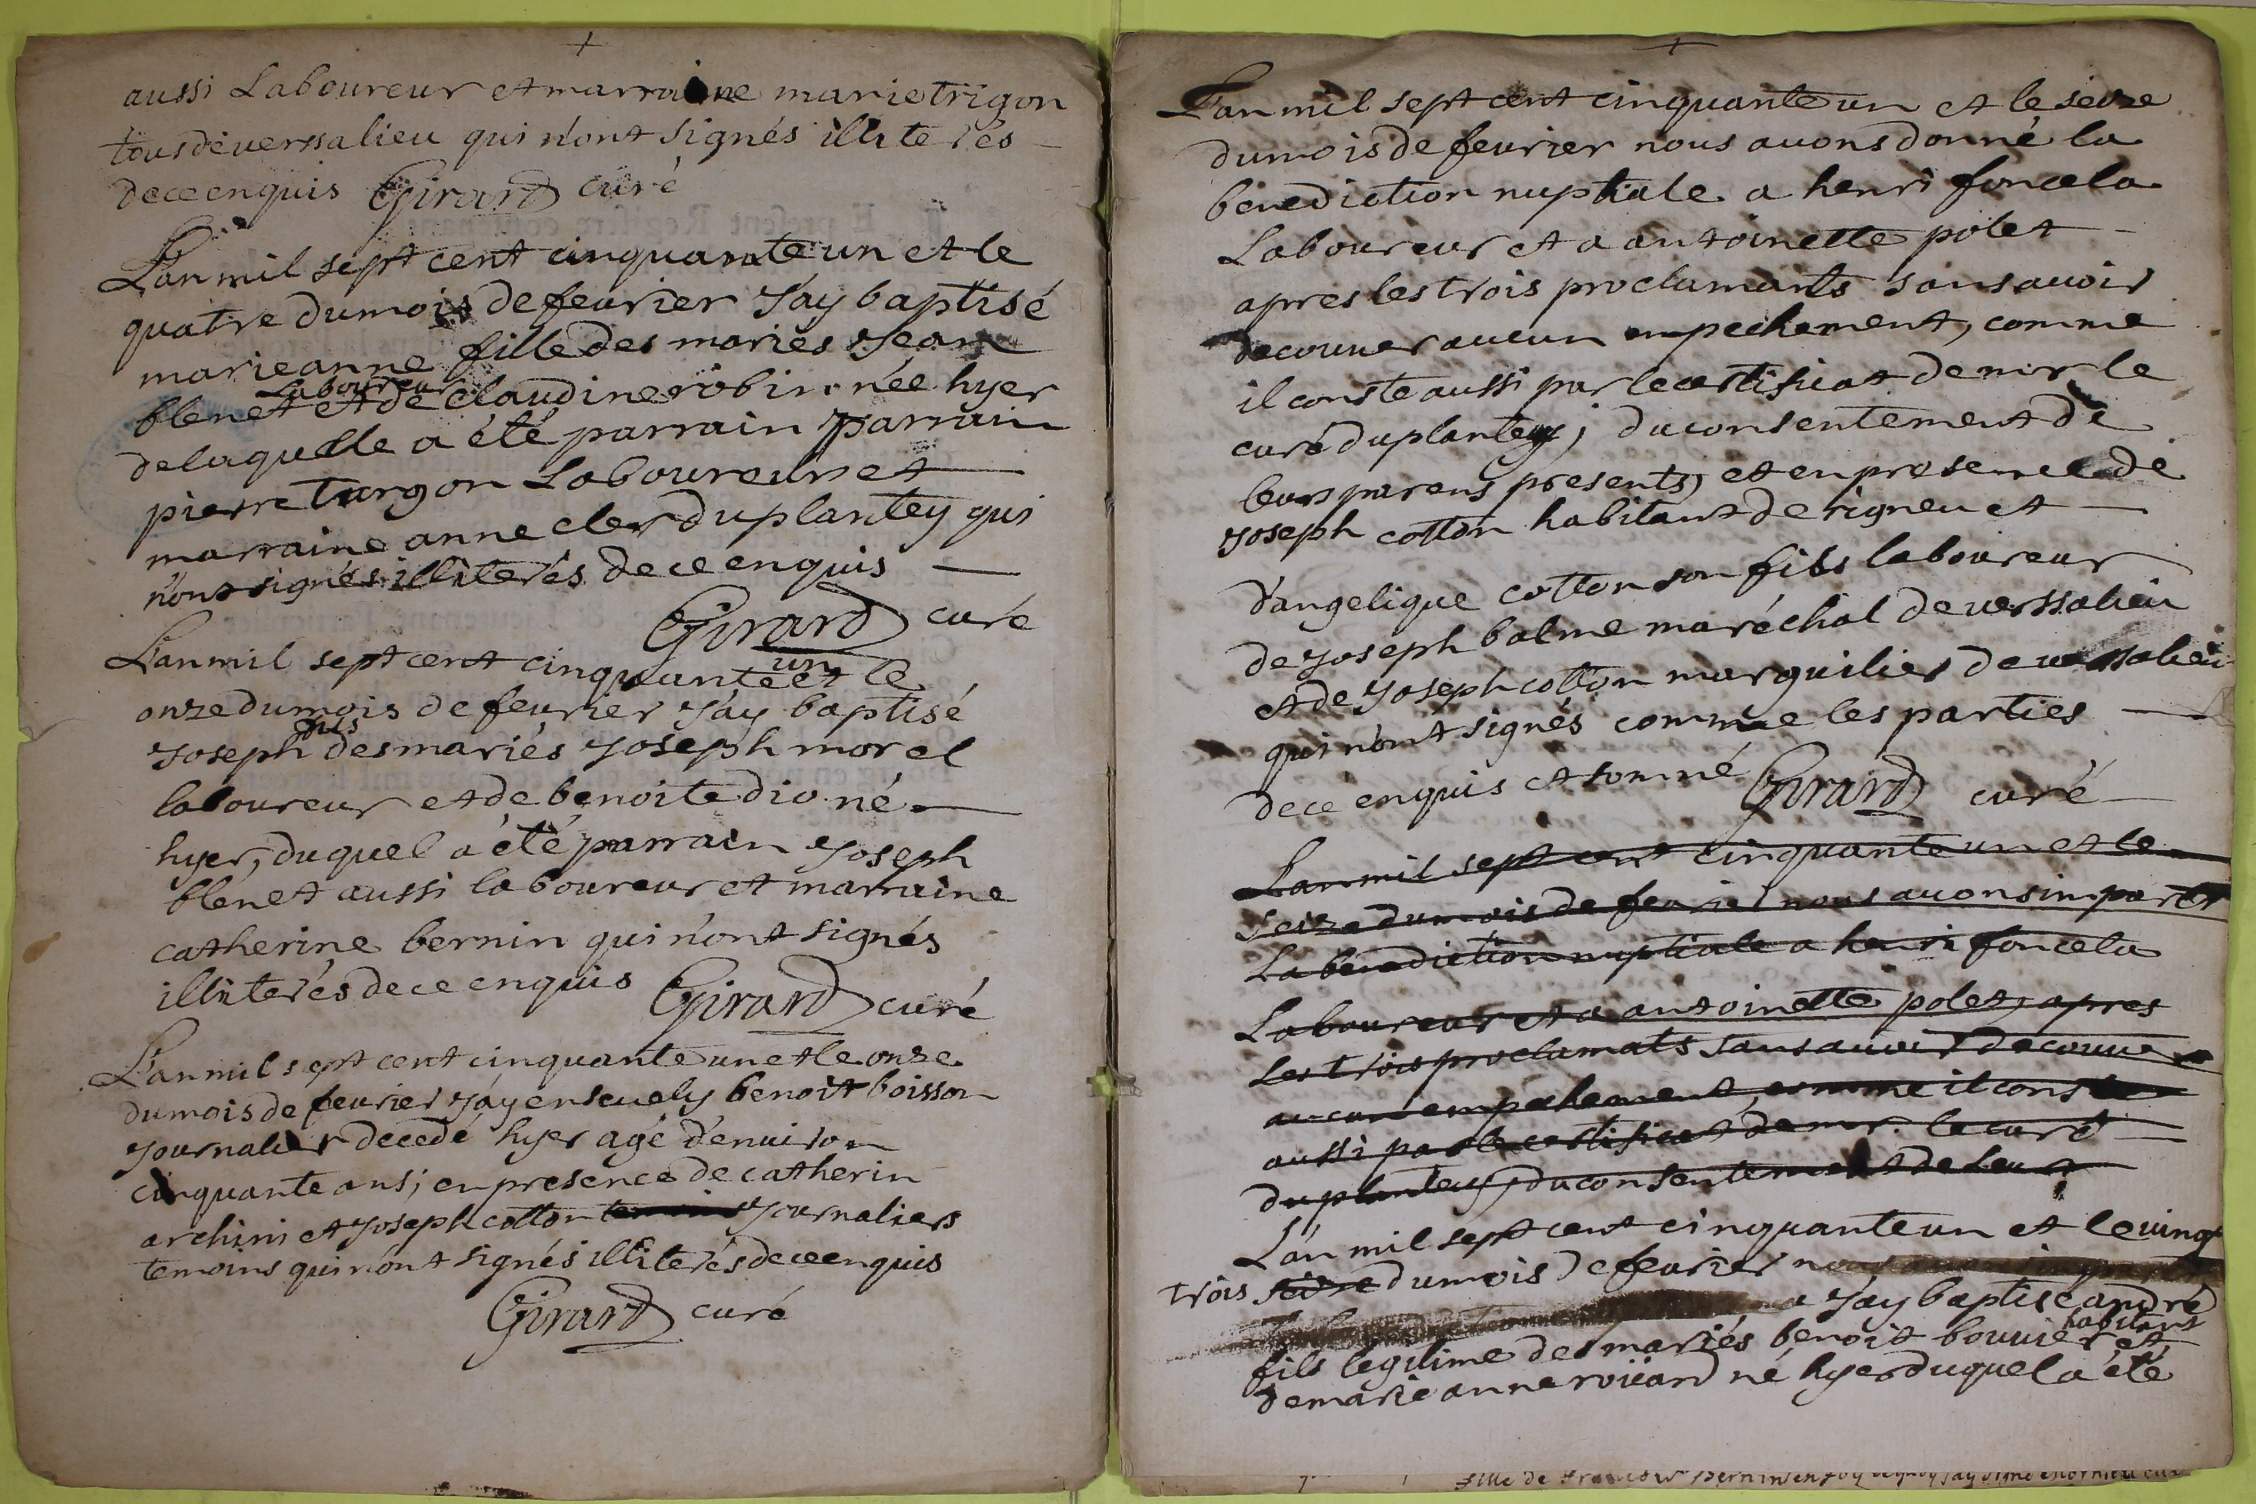 aussi Laboureur et marraine marie trigon
tous de versalieu qui n'ont signés illiterés
de ce enquis Girard curé
L'an mil sept cent cinquante un et le
quatre du mois de feurier J'ay baptisé
marie anne fille des mariés Jean
Laboureur
blenet et de claudine robin née hyer
de laquelle a été parrain parrain
pierre turgon Laboureur et
marraine anne cler du plantey qui
n'ont signés illiterés de ce enquis
Girard curé
L'an mil sept cent cinquante un et le
onze du mois de feurier J'ay baptisé
Joseph fils des mariés Joseph morel
laboureur et de benoite dio né
hyer, duquel a été parrain Joseph
blenet aussi laboureur et marraine
catherine bernin qui n'ont signés
illiterés de ce enquis Girard curé
L'an mil sept cent cinquante un et le onze
du mois de feurier J'ay enseuely benoit boisson
Journalier decedé hyer agé d'enuiron
cinquante ans; en presence de catherin
archini et Joseph cotton temoins Journaliers
temoins qui n'ont signés illiterés de ce enquis
Girard curé
L'an mil sept cent cinquante un et le seize
du mois de feurier nous auons donné la
benediction nuptiale a henri foncela
Laboureur et a antoinette polet
apres les trois proclamants sans auoir
decouuer aucun empechement, comme
il conste aussi par le certificat de mr le
curé du plantey; du consentement de
leurs parens presents, et en presence de
Joseph cotton habitant de rigneu et
d'angelique cotton son fils laboureur
de Joseph balme maréchal de verssalieu
et de Joseph cotton marguilier de verssalieu
qui n'ont signés comme les parties
de ce enquis et sommé Girard curé
L'an mil sept cent cinquante un et le
seize du mois de feurier nous auons imparti
La bénediction nuptiale a henri foncela
Laboureur et a antoinette polet, apres
Les trois proclamats sans auoir decouuer
aucun empechement, comme il conste
aussi par le certificat de mr. le curé
du plantey, du consentement de leurs
L'an mil sept cent cinquante un et le vingt
trois seize du mois de feurier nous auons imparti
J'ay baptisé andré
fils legitime des mariés benoit bouuier habitant et
de marie anne roüard né hyer duquel a été
fille de